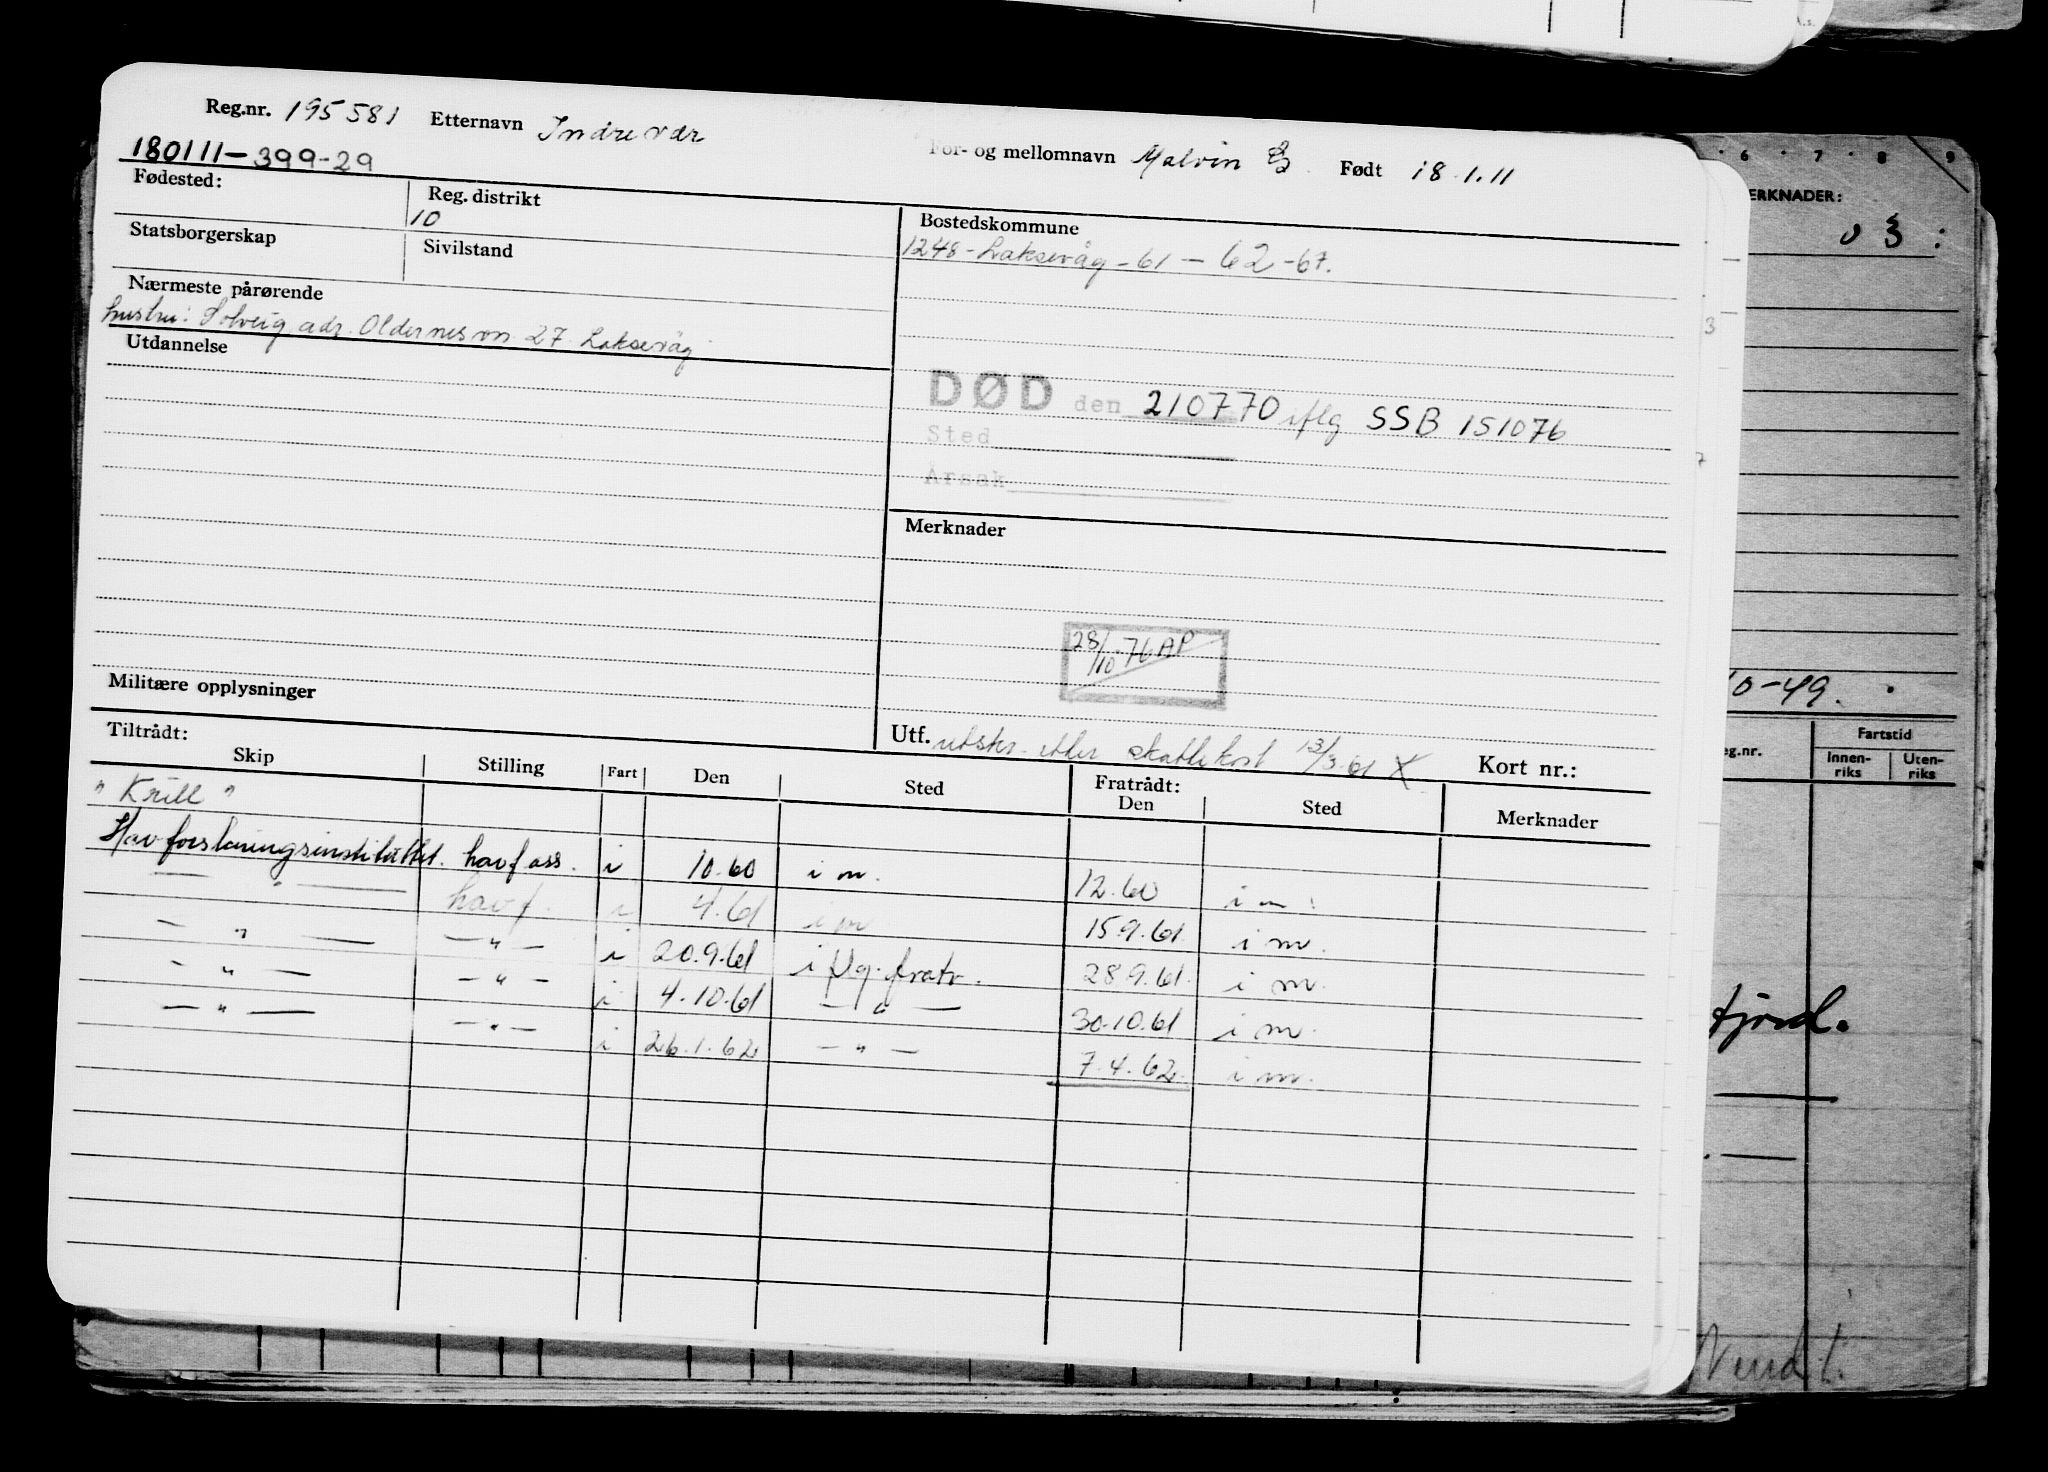 Reg.nr. 195581 Etternavn Indrevær For- og mellomnavn Malvin Født 18.1.11
180111-399-29
Fødested: Reg. distrikt
10
Statsborgerskap Sivilstand
Nærmeste pårørende
hustru: Solveig adr. Oldernesvn 27 Laksevåg
Utdannelse
Militære opplysninger
Bostedskommune
1248-Laksevåg-61-62-67.
DØD den 210770 iflg SSB 151076
Sted
Årsak
Merknader
28/10-76 AP
Utf. utskr. etter skattekort 13/3-61 X Kort nr.:
Tiltrådt: Fratrådt:
Skip Stilling Fart Den Sted Den Sted Merknader
"Krill"
Havforskningsinstituttet. havf ass. i 10.60 i m. 12.60 i m.
— " — havf. i 4.61 i m 15.9.61 i m.
— " — — " — i 20.9.61 i flg. fratr. 28.9.61. i m.
— " — — " — i 4.10.61 — " — 30.10.61 i m.
— " — — " — i 26.1.62 — " — 7.4.62. i m.
6 7 8 9
ERKNADER:
03:
3
7
10-49.
eg.nr. Fartstid
Innen-riks Uten-riks
fjord.
A.s.